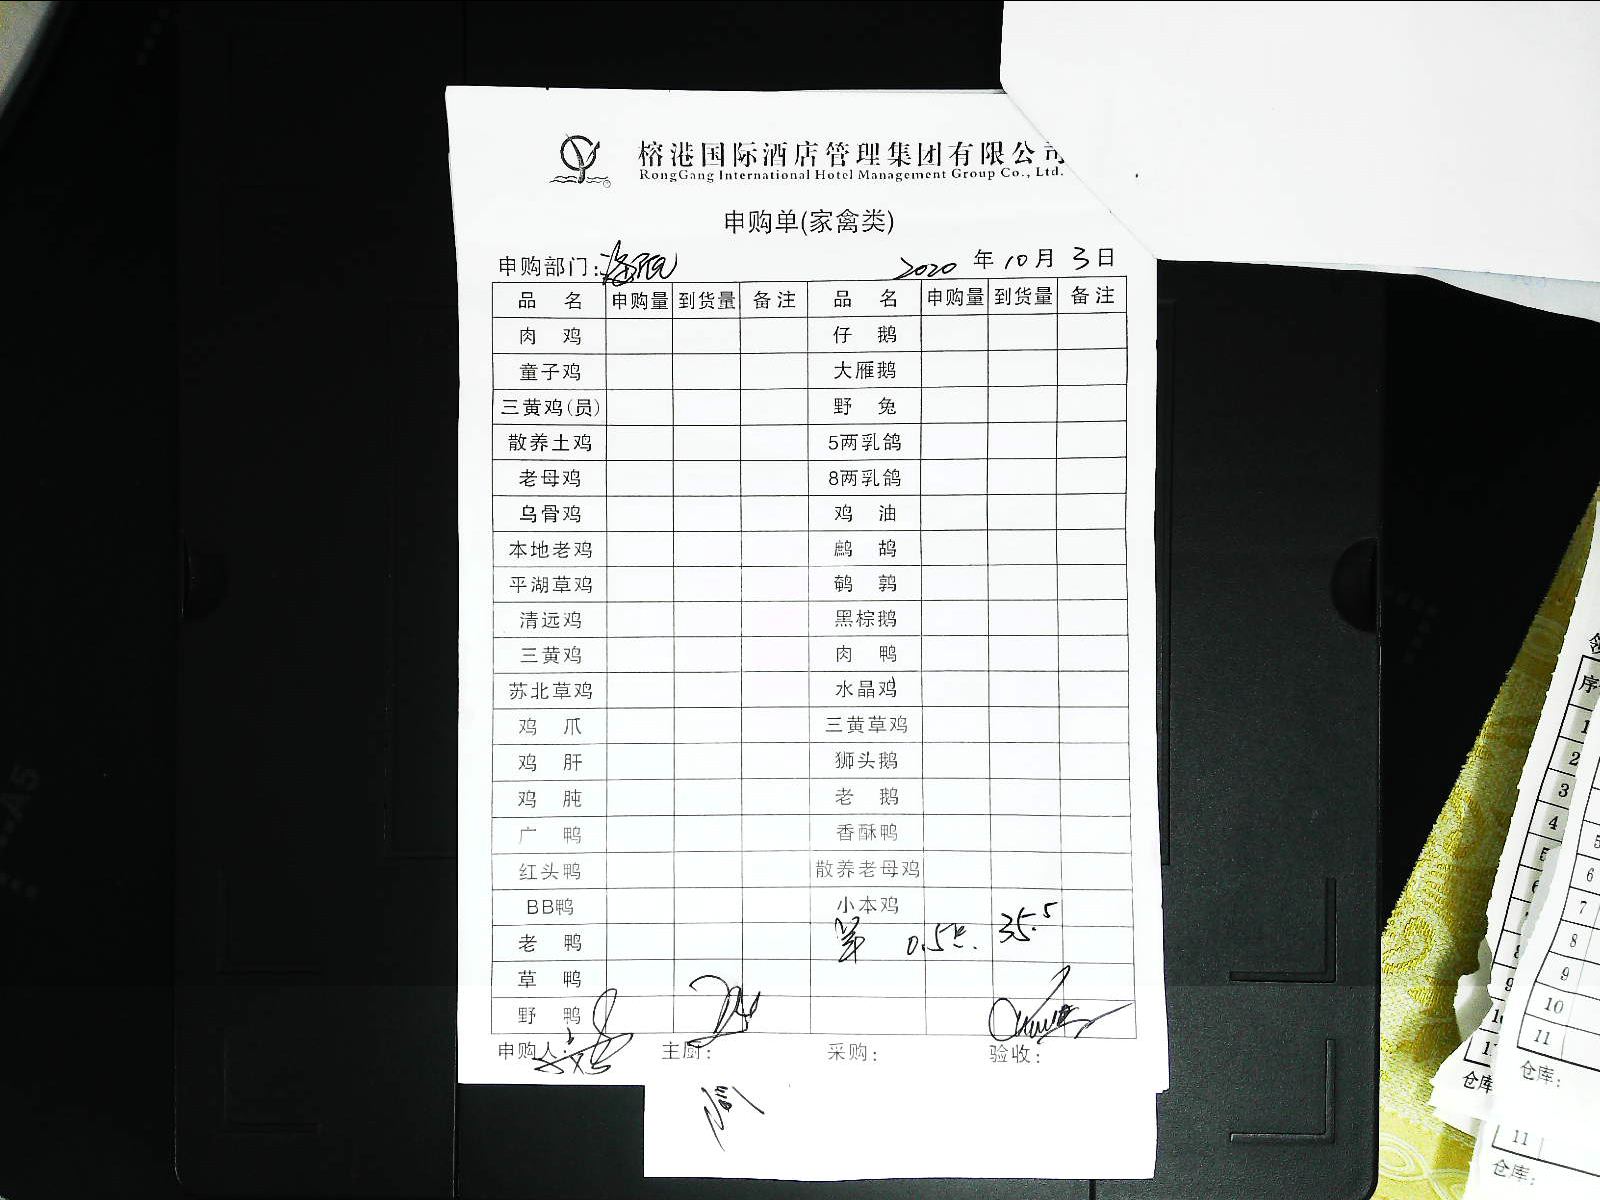 榕港国际酒店管理集团有限公司
RongGang International Hotel Management Group Co., Ltd.
申购单(家禽类)
申购部门: 2020 年 10 月 3 日
品 名 申购量 到货量 备注 品 名 申购量 到货量 备注
肉 鸡 仔 鹅
童子鸡 大雁鹅
三黄鸡(员) 野 兔
散养土鸡 5两乳鸽
老母鸡 8两乳鸽
乌骨鸡 鸡 油
本地老鸡 鹧 鸪
平湖草鸡 鹌 鹑
清远鸡 黑棕鹅
三黄鸡 肉 鸭
苏北草鸡 水晶鸡
鸡 爪 三黄草鸡
鸡 肝 狮头鹅
鸡 肫 老 鹅
广 鸭 香酥鸭
红头鸭 散养老母鸡
BB鸭 小本鸡
老 鸭 0.5 35.5
草 鸭
野 鸭
申购人: 主厨: 采购: 验收:
序
1
2
3
4
5
6
7
8
9
10
11
仓库:
5
6
7
8
9
10
11
仓库:
11
仓库: